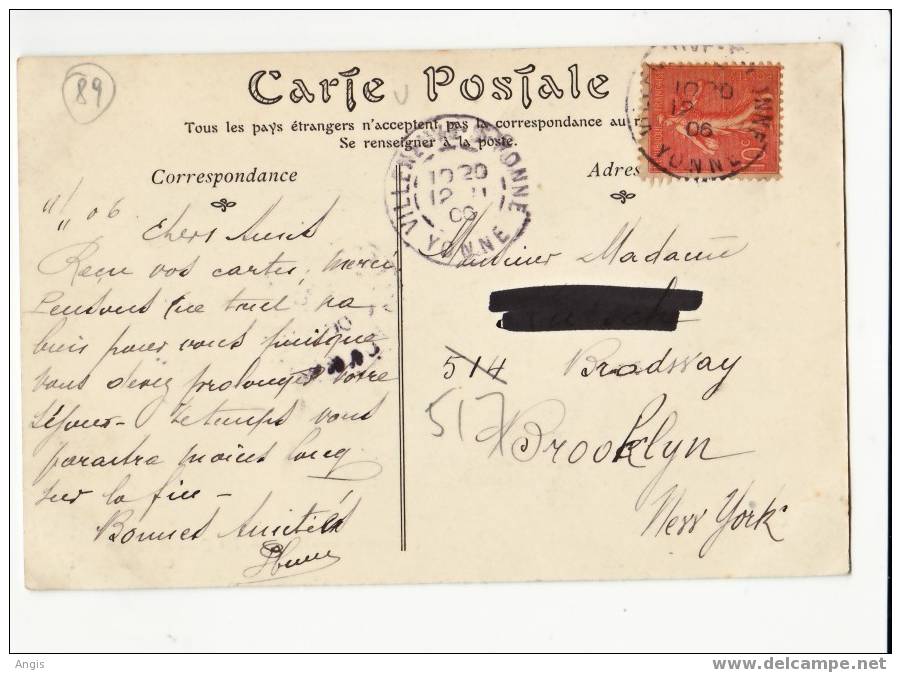 89
Carte Postale
Tous les pays étrangers n'acceptent pas la correspondance au
Se renseigner à la poste.
Correspondance
Adres
VILLENEUVE S. YONNE
10 20
12 11
06
YONNE
10 20
12
06
YONNE
10c
11/11 06
Chers Amis
Reçu vos cartes, merci
Pensons que tout va
bien pour vous puisque
vous devez prolonger votre
séjour - le temps vous
paraitra moins long
sur la fin -
Bonnes Amitiés
Monsieur Madame
514
517
Broadway
Brooklyn
New York
Angis
www.delcampe.net